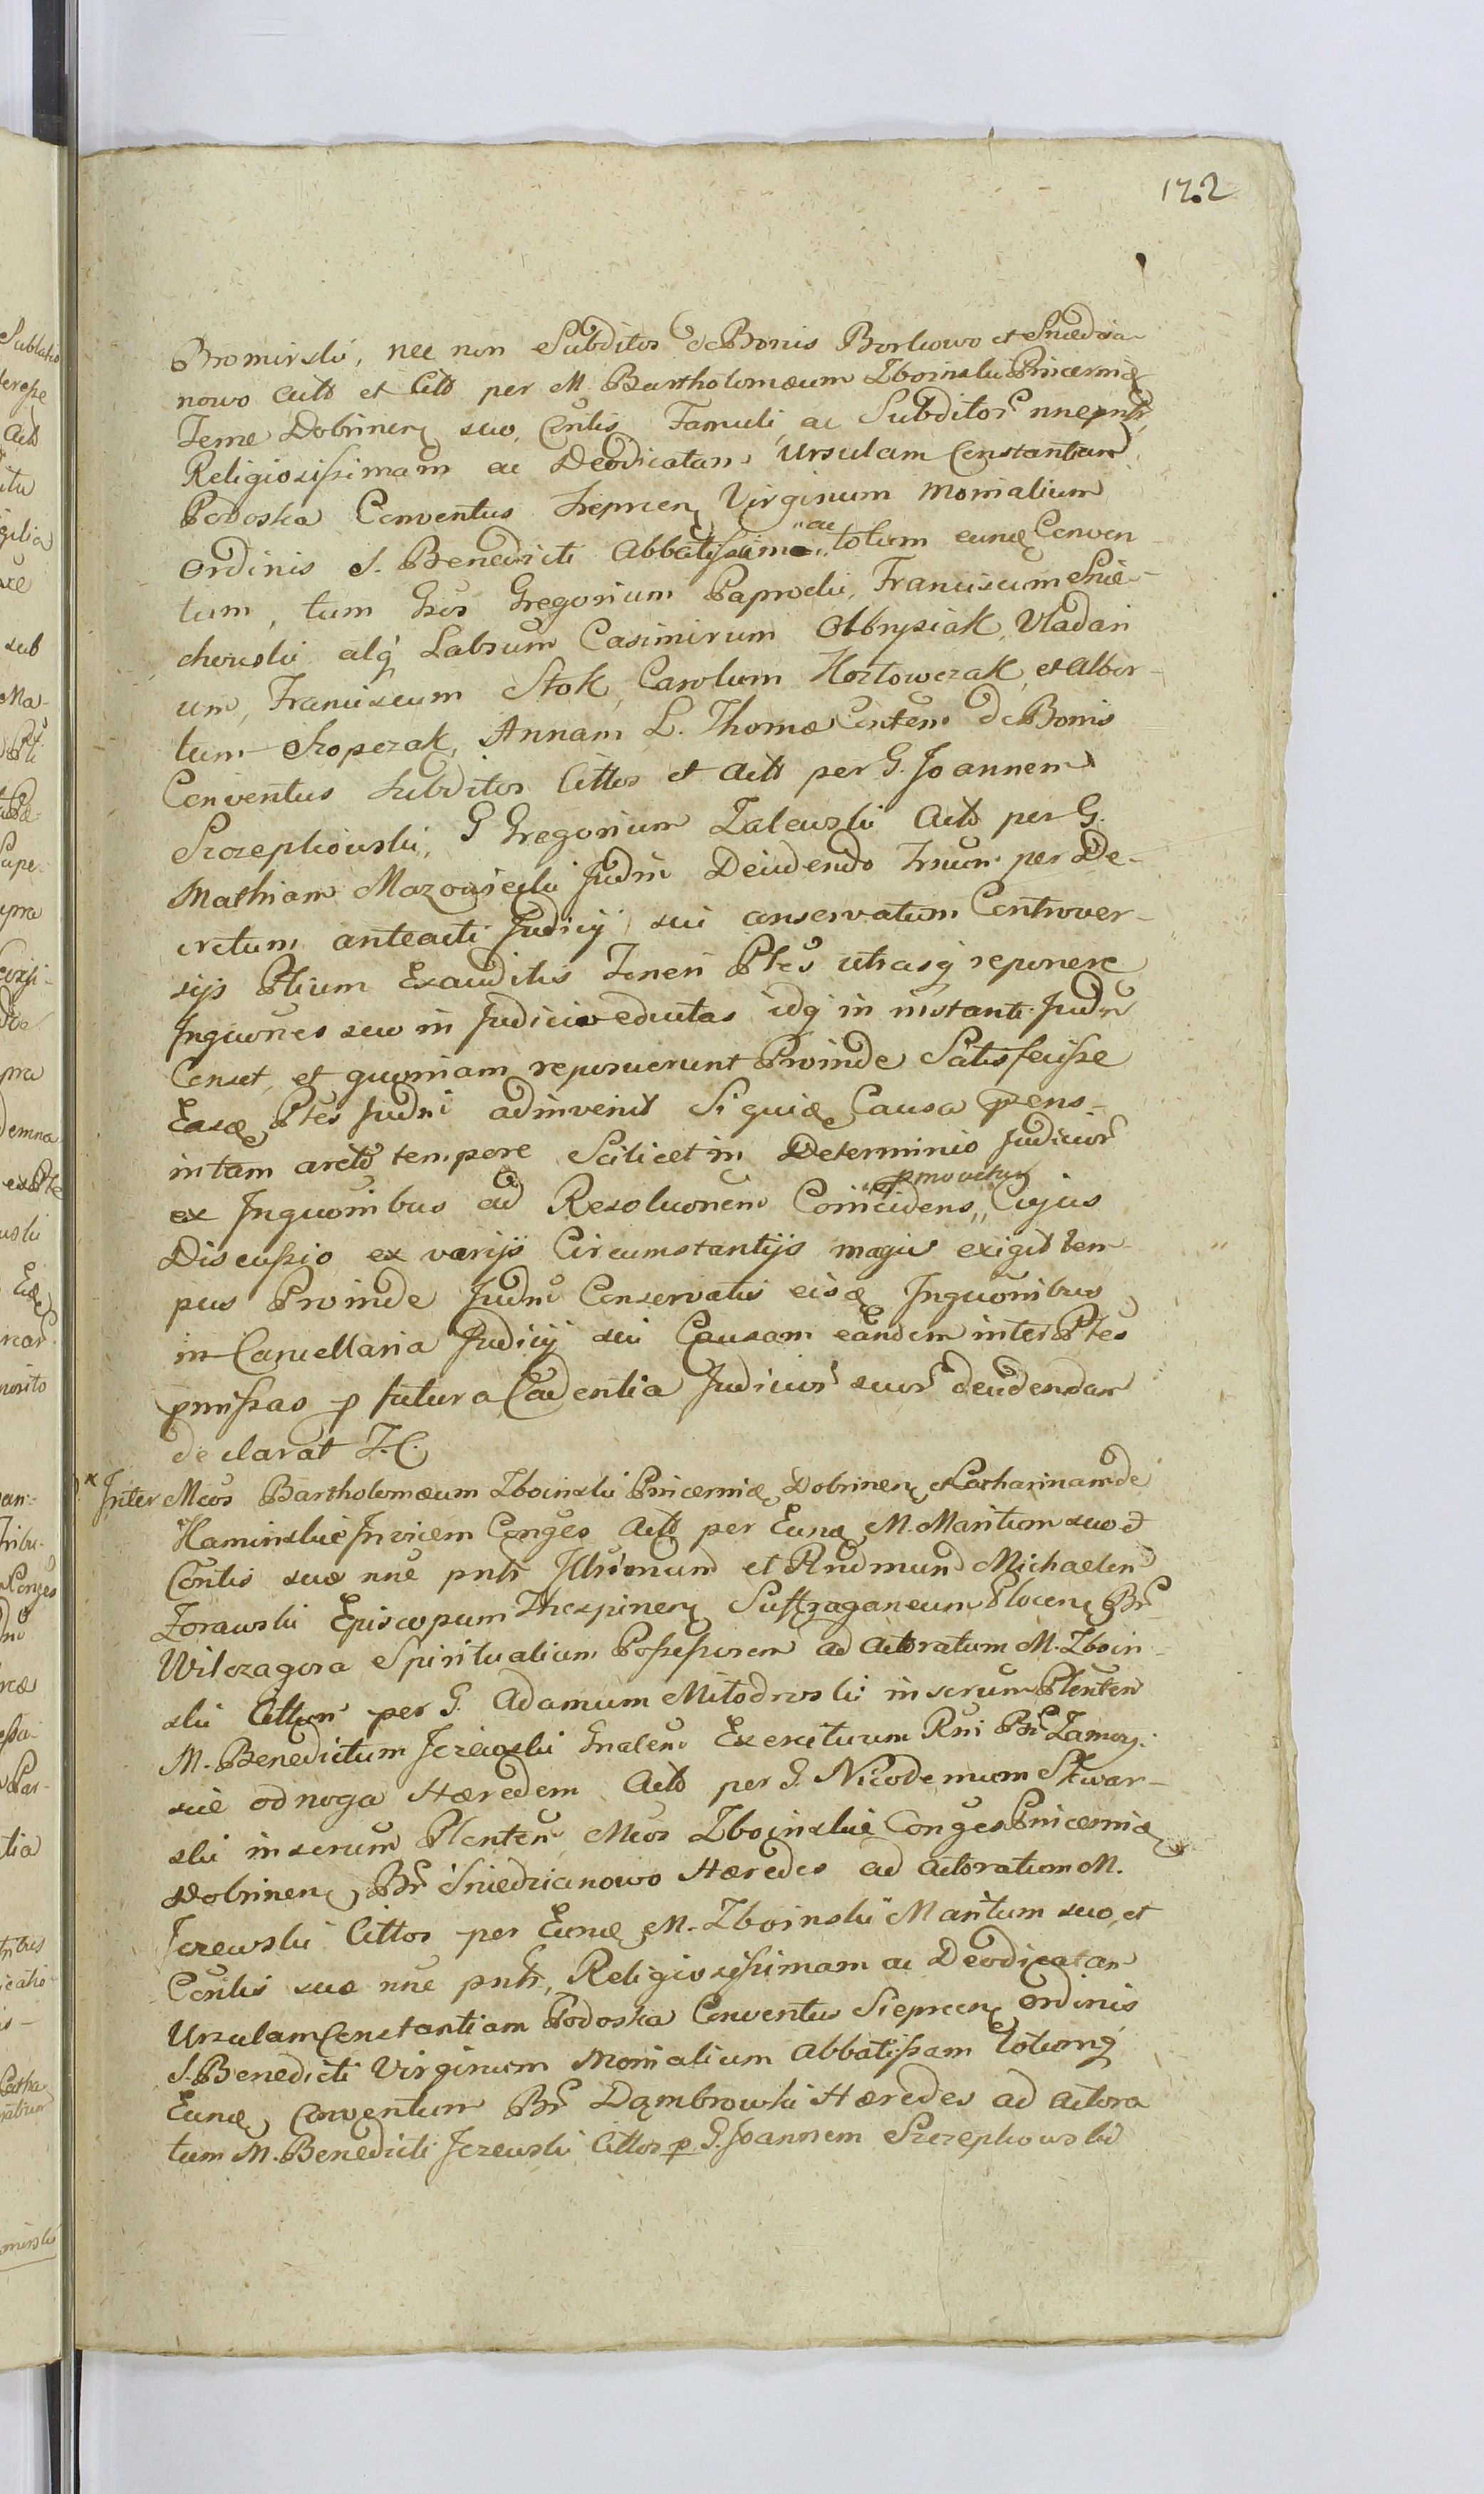 172
Bromirski, nec non Subditos de Bonis Borkowo et Sniedzia-
nowo Actt et Citt per M. Bartholomæum Zboinski Pincernæ
Terræ Dobrinen suo, Contis Famuli, ac Subditor nne pntr,
Religiosissimam ac Deodicatam Ursulam Constantiam
Podoska Conventus Sieprcen Virginum Monialium
Ordinis S. Benedicti Abbatissam ac totum eunde Conven-
tum, tum Gsos Gregorium Paprocki, Franciscum Snie-
chowski atq Labsum Casimirum Olbrysiak, Vladari
um, Franciscum Stok, Carolum Kozlowczak, et Alber-
tum Skopczak, Annam L. Thomæ Conten de Bonis
Conventus Subditos Cittos et Actt per G. Joannem
Szczepkowski, G Gregorium Zalewski Actt per G.
Mathiam Mazowiecki Judm Deciidendo Trnum per De-
cretum anteacti Judicij sui conservatum Controver-
sijs Ptium Exauditis Teneri Ptes utrasq reponere
Inquones suo in Judicio eductas idq in instanti Judm
Censet, et quoniam reposuerunt Proinde Satisfecisse
Easde Ptes Judm adinvenit Si quide Causa præns
in tam arcto tempore Scilicet in Determinio Judicior
ex Inquonibus ad Resolucionem Coincidens, pmovetur Cujus
Discussio ex varijs Circumstantijs magis exigit tem-
pus Proinde Judm Conservatis eisde Inquonibus
in Cancellaria Judicij sui Causam eandem inter Ptes
pmissas p futura Cadentia Judicior suor decidendam
declarat T. C.
Inter Mcos Bartholomæum Zboinski Pincernæ Dobrinen et Catharinam de
Kaminskie Invicem Conges Actt per Eund M. Maritum suo et
Contis suæ nne pntr Illrimum et Rndmum Michaelem
Zorawski Episcopum Thespinen Suffraganeum Plocen Br
Wilczagora Spiritualium Possessorem ad Actoratum M. Zboin-
ski Cittum per G. Adamum Mlodowski inserum Plenten
M. Benedictum Jezewski Gnalem Exercituum Rni Br Zamoy:
scie odnoga Hæredem Actt per G. Nicodemum Skwar-
ski inserum Plenten Mcos Zboinskie Conges Pincernæ
Dobrinen, Br Sniedzianowo Hæredes ad Actoratum M.
Jezewski Cittos per Eund M. Zboinski Maritum suo, et
Contis suæ nne pntr, Religiosissimam ac Deodicatam
Ursulam Constantiam Podoska Conventus Sieprcen Ordinis
S. Benedicti Virginum Monialium Abbatissam totumq
Eund Conventum Br Dąmbrowski Hæredes ad Actora
tum M. Benedicti Jezewski Cittos p G. Joannem Szczepkowski